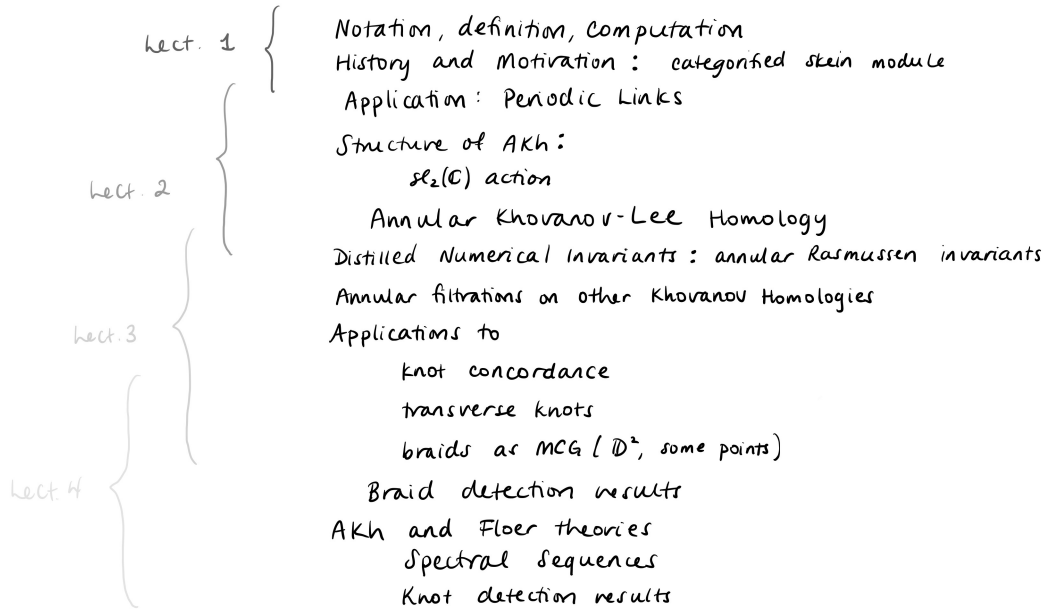 Lect. 1
Notation, definition, computation
History and Motivation : categorified skein module
Application: Periodic Links
Structure of AKh:
Lect. 2
sl₂(ℂ) action
Annular Khovanov-Lee Homology
Distilled Numerical Invariants : annular Rasmussen invariants
Annular filtrations on other Khovanov Homologies
Lect. 3
Applications to
knot concordance
transverse knots
braids as MCG ( 𝔻², some points)
Lect. 4
Braid detection results
AKh and Floer theories
Spectral Sequences
Knot detection results